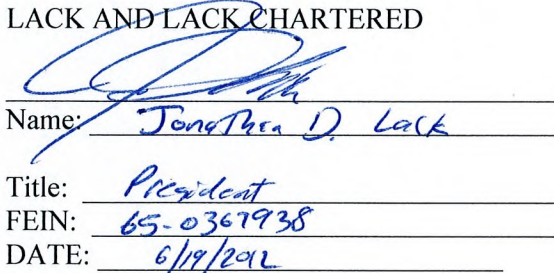 LACK AND LACK CHARTERED
Name: Jonathan D. Lack
Title: President
FEIN: 65-0367938
DATE: 6/19/2012